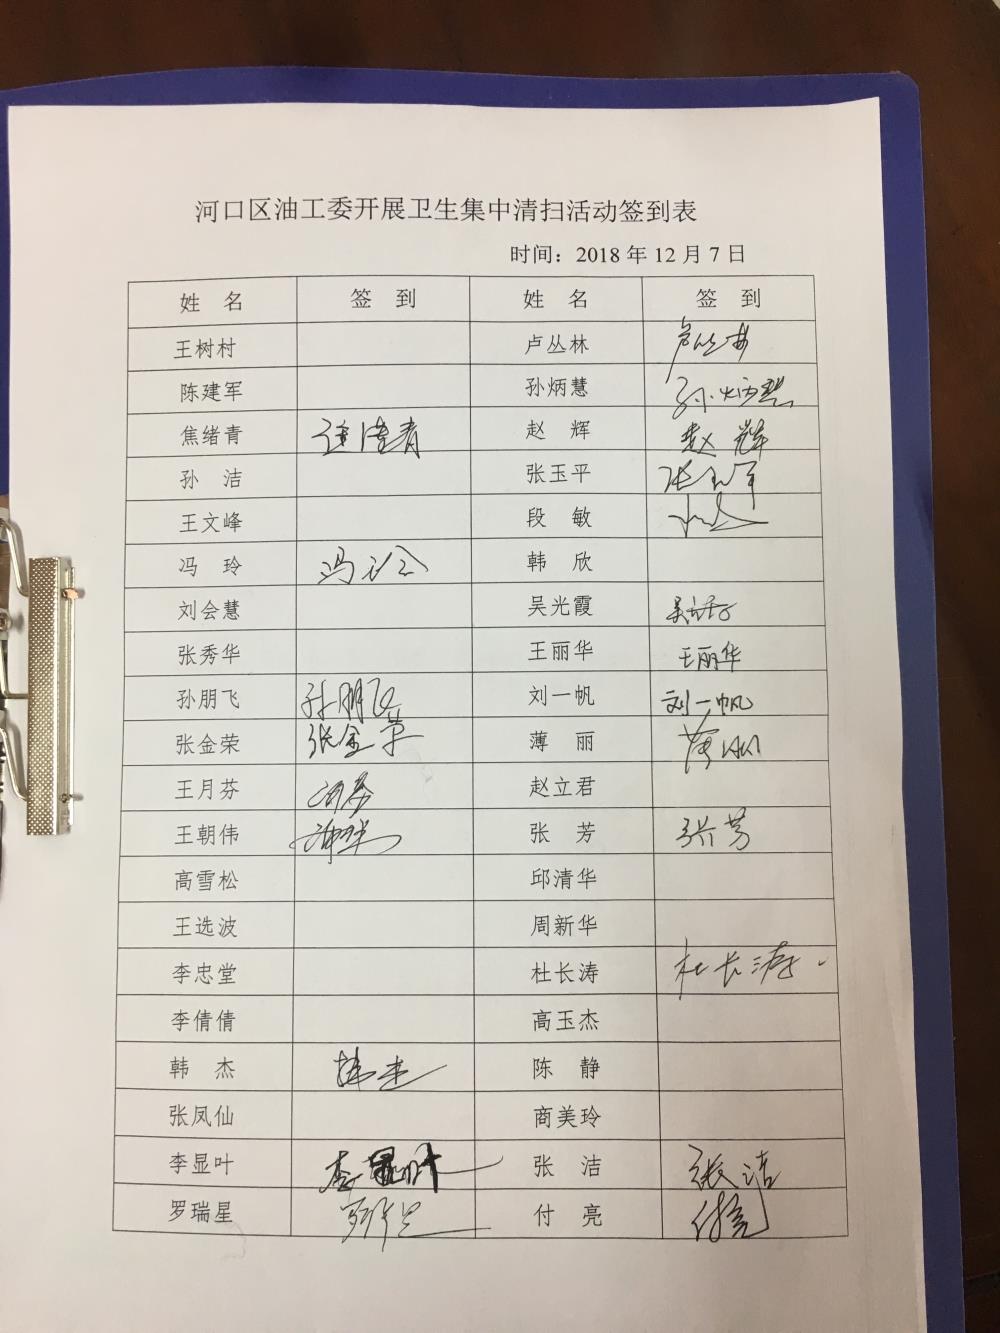 河口区油工委开展卫生集中清扫活动签到表
时间：2018 年 12 月 7 日
姓 名 签 到 姓 名 签 到
王树村 卢丛林
陈建军 孙炳慧 孙炳慧
焦绪青 赵 辉 赵辉
孙 洁 张玉平 张玉平
王文峰 段 敏
冯 玲 冯玲 韩 欣
刘会慧 吴光霞
张秀华 王丽华 王丽华
孙朋飞 孙朋飞 刘一帆 刘一帆
张金荣 张金荣 薄 丽 薄丽
王月芬 赵立君
王朝伟 张 芳 张芳
高雪松 邱清华
王选波 周新华
李忠堂 杜长涛 杜长涛
李倩倩 高玉杰
韩 杰 韩杰 陈 静
张凤仙 商美玲
李显叶 李显叶 张 洁 张洁
罗瑞星 付 亮 付亮